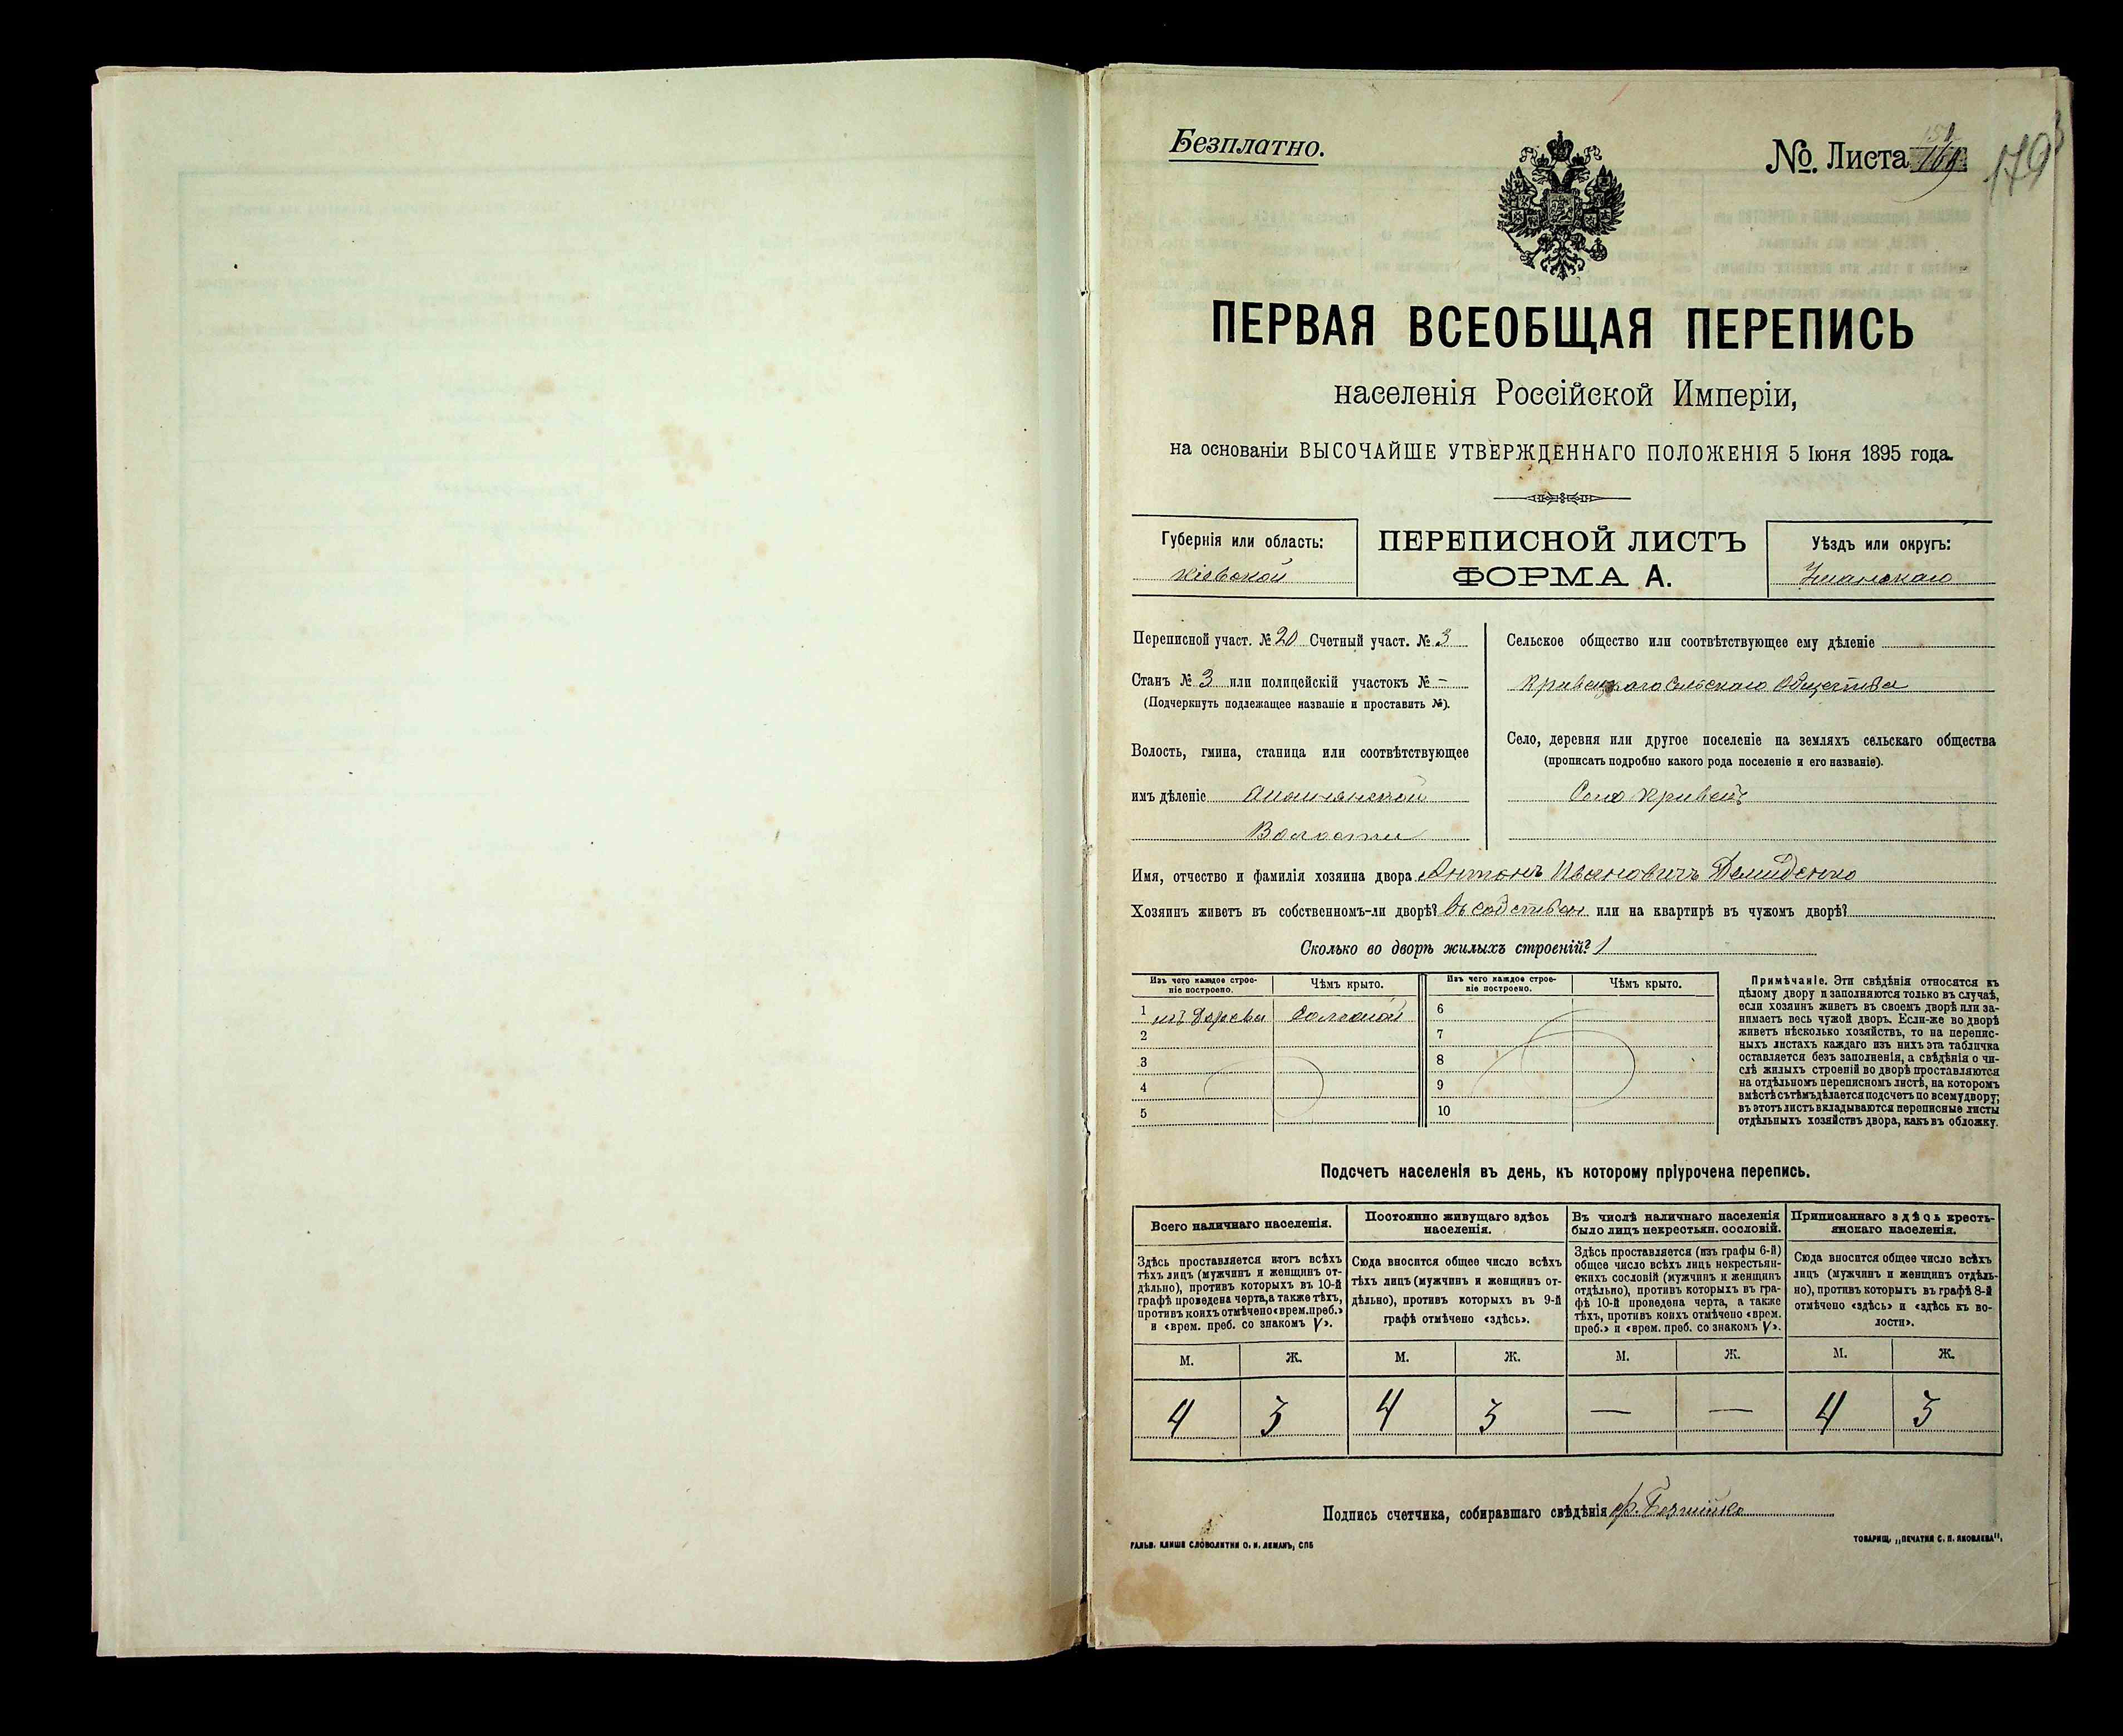 Безплатно.
№. Листа
ПЕРВАЯ ВСЕОБЩАЯ ПЕРЕПИСЬ
населенія Россійской Имперіи,
на основаніи ВЫСОЧАЙШЕ УТВЕРЖДЕННАГО ПОЛОЖЕНІЯ 5 Іюня 1895 года.
Губернія или область:
Кіевской
ПЕРЕПИСНОЙ ЛИСТЪ
ФОРМА А.
Уѣздъ или округъ:
Уманскаго
Переписной участ. № 20 Счетный участ. № 3
Станъ № 3 или полицейскій участокъ № –
(Подчеркнуть подлежащее названіе и проставить №).
Волость, гмина, станица или соотвѣтствующее
имъ дѣленіе
Волости
Сельское общество или соотвѣтствующее ему дѣленіе
Кривецкаго Сельскаго Общества
Село, деревня или другое поселеніе на земляхъ сельскаго общества
(прописать подробно какого рода поселеніе и его названіе).
Село Кривецъ
Имя, отчество и фамилія хозяина двора Антонъ Ивановичъ Демиденко
Хозяинъ живетъ въ собственномъ-ли дворѣ? Въ собствен или на квартирѣ въ чужомъ дворѣ?
Сколько во дворѣ жилыхъ строеній? 1
Изъ чего каждое строе-
ніе построено.
Чѣмъ крыто.
1 изъ Дерева Соломой
2
3
4
5
Изъ чего каждое строе-
ніе построено.
Чѣмъ крыто.
6
7
8
9
10
Примѣчаніе. Эти свѣдѣнія относятся къ
цѣлому двору и заполняются только въ случаѣ,
если хозяинъ живетъ въ своемъ дворѣ или за-
нимаетъ весь чужой дворъ. Если-же во дворѣ
живетъ нѣсколько хозяйствъ, то на перепис-
ныхъ листахъ каждаго изъ нихъ эта табличка
оставляется безъ заполненія, а свѣдѣнія о чи-
слѣ жилыхъ строеній во дворѣ проставляются
на отдѣльномъ переписномъ листѣ, на которомъ
вмѣстѣ съ тѣмъ дѣлается подсчетъ по всему двору;
въ этотъ листъ вкладываются переписные листы
отдѣльныхъ хозяйствъ двора, какъ въ обложку.
Подсчетъ населенія въ день, къ которому пріурочена перепись.
Всего наличнаго населенія.
Здѣсь проставляется итогъ всѣхъ
тѣхъ лицъ (мужчинъ и женщинъ от-
дѣльно), противъ которыхъ въ 10-й
графѣ проведена черта, а также тѣхъ,
противъ коихъ отмѣчено «врем. преб.»
и «врем. преб. со знакомъ V».
Постоянно живущаго здѣсь
населенія.
Сюда вносится общее число всѣхъ
тѣхъ лицъ (мужчинъ и женщинъ от-
дѣльно), противъ которыхъ въ 9-й
графѣ отмѣчено «здѣсь».
Въ числѣ наличнаго населенія
было лицъ некрестьян. сословій.
Здѣсь проставляется (изъ графы 6-й)
общее число всѣхъ лицъ некрестьян-
скихъ сословій (мужчинъ и женщинъ
отдѣльно), противъ которыхъ въ гра-
фѣ 10-й проведена черта, а также
тѣхъ, противъ коихъ отмѣчено «врем.
преб.» и «врем. преб. со знакомъ V».
Приписаннаго здѣсь кресть-
янскаго населенія.
Сюда вносится общее число всѣхъ
лицъ (мужчинъ и женщинъ отдѣль-
но), противъ которыхъ въ графѣ 8-й
отмѣчено «здѣсь» и «здѣсь къ во-
лости».
М. Ж. М. Ж. М. Ж. М. Ж.
4 3 4 3 — — 4 3
Подпись счетчика, собиравшаго свѣдѣнія
ГАЛЬВ. КЛИШЕ СЛОВОЛИТНИ О. И. ЛЕМАНЪ, СПБ
ТОВАРИЩ. „ПЕЧАТНЯ С. П. ЯКОВЛЕВА".